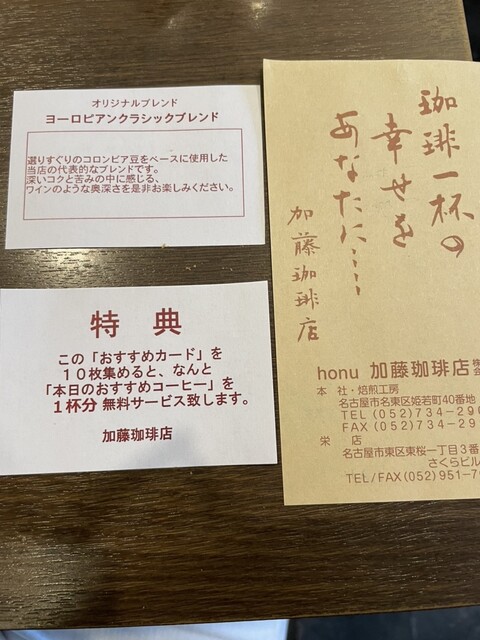 オリジナルブレンド
ヨーロピアンクラシックブレンド
選りすぐりのコロンビア豆をベースに使用した
当店の代表的なブレンドです。
深いコクと苦みの中に感じる、
ワインのような奥深さを是非お楽しみください。
特典
この「おすすめカード」を
10枚集めると、なんと
「本日のおすすめコーヒー」を
1杯分 無料サービス致します。
加藤珈琲店
珈琲一杯の
幸せを
あなたに……
加藤珈琲店
honu 加藤珈琲店 株
本 社・焙煎工房
名古屋市名東区姫若町40番地
TEL (052)734-29
FAX (052)734-29
栄 店
名古屋市東区東桜一丁目3番
さくらビル
TEL/FAX(052)951-7